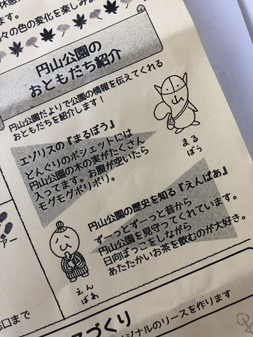 々の色の変化を楽しみ
円山公園の
おともだち紹介
円山公園だよりで公園の情報を伝えてくれる
おともだちを紹介します！
エゾリスの『まるぼう』
どんぐりのポシェットには
円山公園の木の実がたくさん
入ってます。お腹が空いたら
モグモグポリポリ。
まる
ぼう
円山公園の歴史を知る『えんばあ』
ずーっとずーっと昔から
円山公園を見守ってくれています。
日向ぼっこをしながら
あたたかいお茶を飲むのが大好き。
えん
ばあ
口まで
りくご
ジナルのリースを作ります